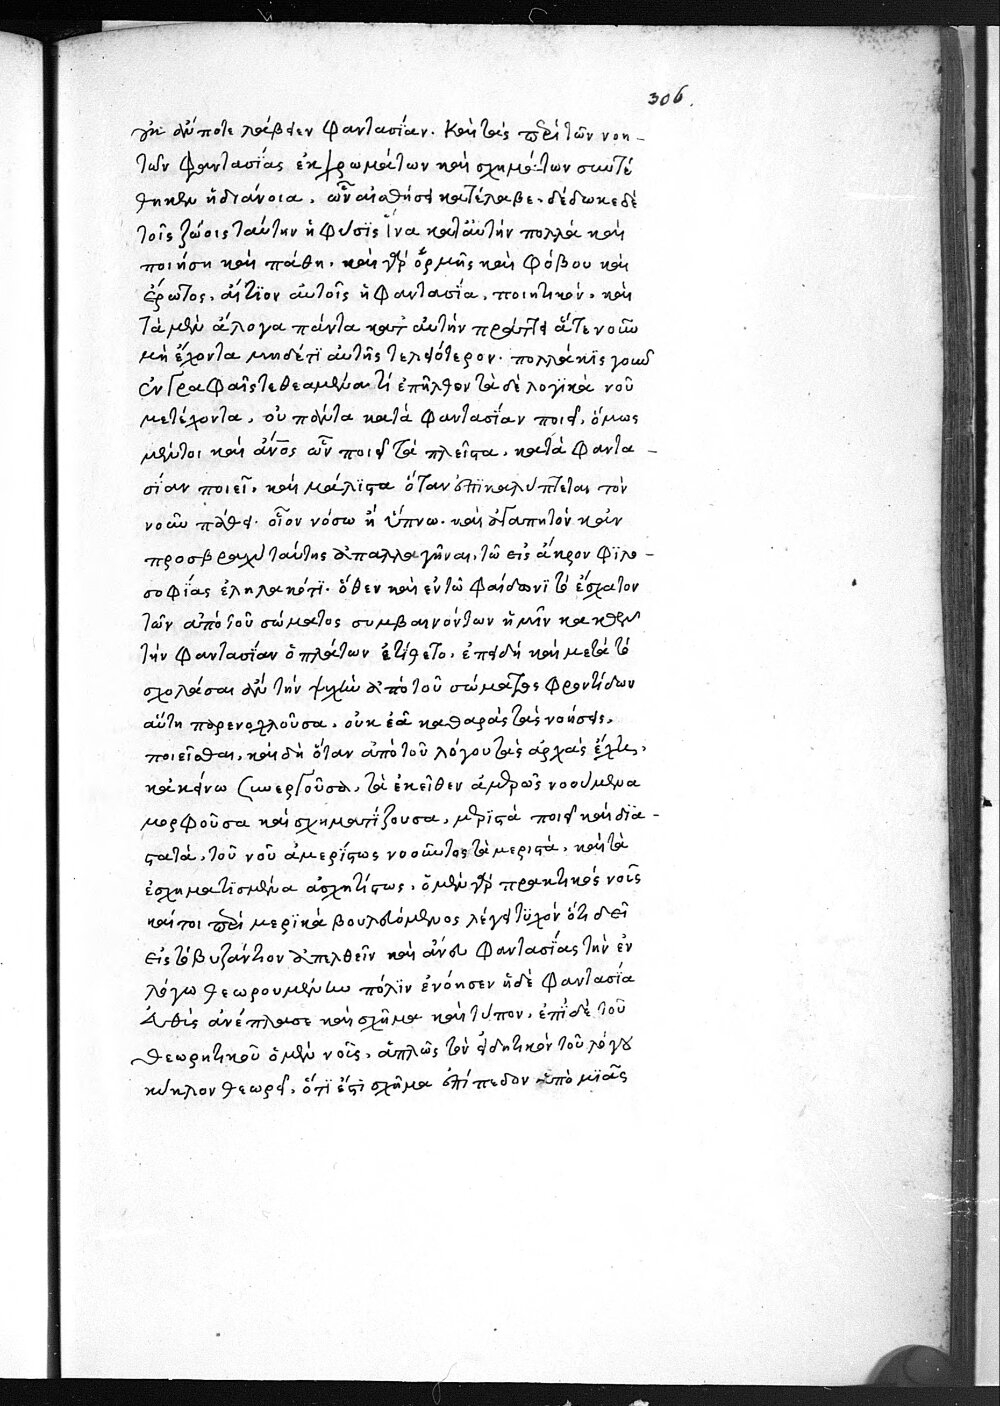 306.
γὰρ ἄν ποτε λάβοιεν φαντασίαν. καὶ τὰς περὶ τῶν νοη-
τῶν φαντασίας ἐκ χρωμάτων καὶ σχημάτων συντέ
θηκεν ἡ διάνοια, ὧν αἰσθήσει κατέλαβε. δέδωκε δὲ
τοῖς ζώοις ταύτην ἡ φύσϊς ἵνα κατ' αὐτὴν πολλὰ καὶ
ποιήση καὶ πάθη. καὶ γὰρ ὁρμῆς καὶ φόβου καὶ
ἔρωτος, αἴτϊον αὐτοῖς ἡ φαντασία, ποιητικὸν. καὶ
τὰ μὲν ἄλογα πάντα κατ' αὐτὴν πράττει ἅτε νοῦν
μὴ ἔχοντα μηδέ τϊ αὐτῆς τελειότερον. πολλάκϊς γοῦν
ἐν γραφαῖς τεθεαμένα τὶ ἐπῆλθον τὰ δὲ λογϊκὰ νοῦ
μετέχοντα, οὐ πάντα κατὰ φαντασίαν ποιεῖ, ὅμως
μέντοι καὶ ἄνος ὧν ποιεῖ τὰ πλεῖστα, κατὰ φαντα -
σίαν ποιεῖ, καὶ μάλϊστα ὅταν ἐπϊκαλύπτεται τὸν
νοῦν πάθει. οἷον νόσω ἢ ὕπνω. καὶ ἀγαπητὸν κἂν
προσβραχὺ ταύτης ἀπαλλαγῆναι, τῶ εἰς ἄκρον φϊλο -
σοφίας ἐληλακότϊ. ὅθεν καὶ ἐν τῶ φαίδωνϊ τὸ ἔσχατον
τῶν ἀπὸ τοῦ σώματος συμβαινόντων ἡμῖν κακῶν
τὴν φαντασίαν ὁ πλάτων ἐτίθετο, ἐπειδὴ καὶ μετὰ τὸ
σχολάσαι ἂν τὴν ψυχὴν ἀπὸ τοῦ σώματος φροντίδων
αὕτη παρενοχλοῦσα, οὐκ ἐᾶ καθαρὰς τὰς νοήσεις,
ποιεῖσθαι, καὶ δὴ ὅταν ἀπὸ τοῦ λόγου τὰς ἀρχὰς ἔχῃ,
κἀκείνω συνεργοῦσα, τὰ ἐκεῖθεν ἀμερῶς νοούμενα
μορφοῦσα καὶ σχηματίζουσα, μερϊστὰ ποιεῖ καὶ δϊα -
στατά, τοῦ νοῦ ἀμερίστως νοοῦντος τὰ μεριστά, καὶ τὰ
ἐσχηματϊσμένα ἀσχητίστως, ὁ μὲν γὰρ πρακτικὸς νοῦς
καίτοι περὶ μερϊκὰ βουλευόμενος λέγει τϋχὸν ὅτι δεῖ
εἰς τὸ βυζάντιον ἀπελθεῖν καὶ ἄνευ φαντασίας τὴν ἐν
λόγω θεωρουμένην πόλϊν ἐνόησεν ἡ δὲ φαντασϊα
εὐθὺς ἀνέπλασε καὶ σχῆμα καὶ τύπον, ἐπϊ δὲ τοῦ
θεωρητικοῦ ὁ μὲν νοῦς, ἁπλῶς τὸν εἰδητικὸν τοῦ λόγου
κύκλον θεωρεῖ, ὅτϊ ἐστϊ σχῆμα ἐπίπεδον ὑπὸ μϊᾶς